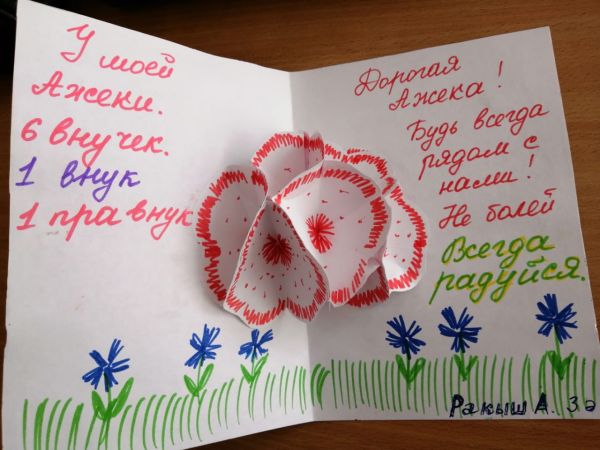 У моей
Ажеки.
6 внучек.
1 внук
1 правнук
Дорогая
Ажека!
Будь всегда
рядом с
нами!
Не болей
Всегда
радуйся.
Ракыш А. 3а